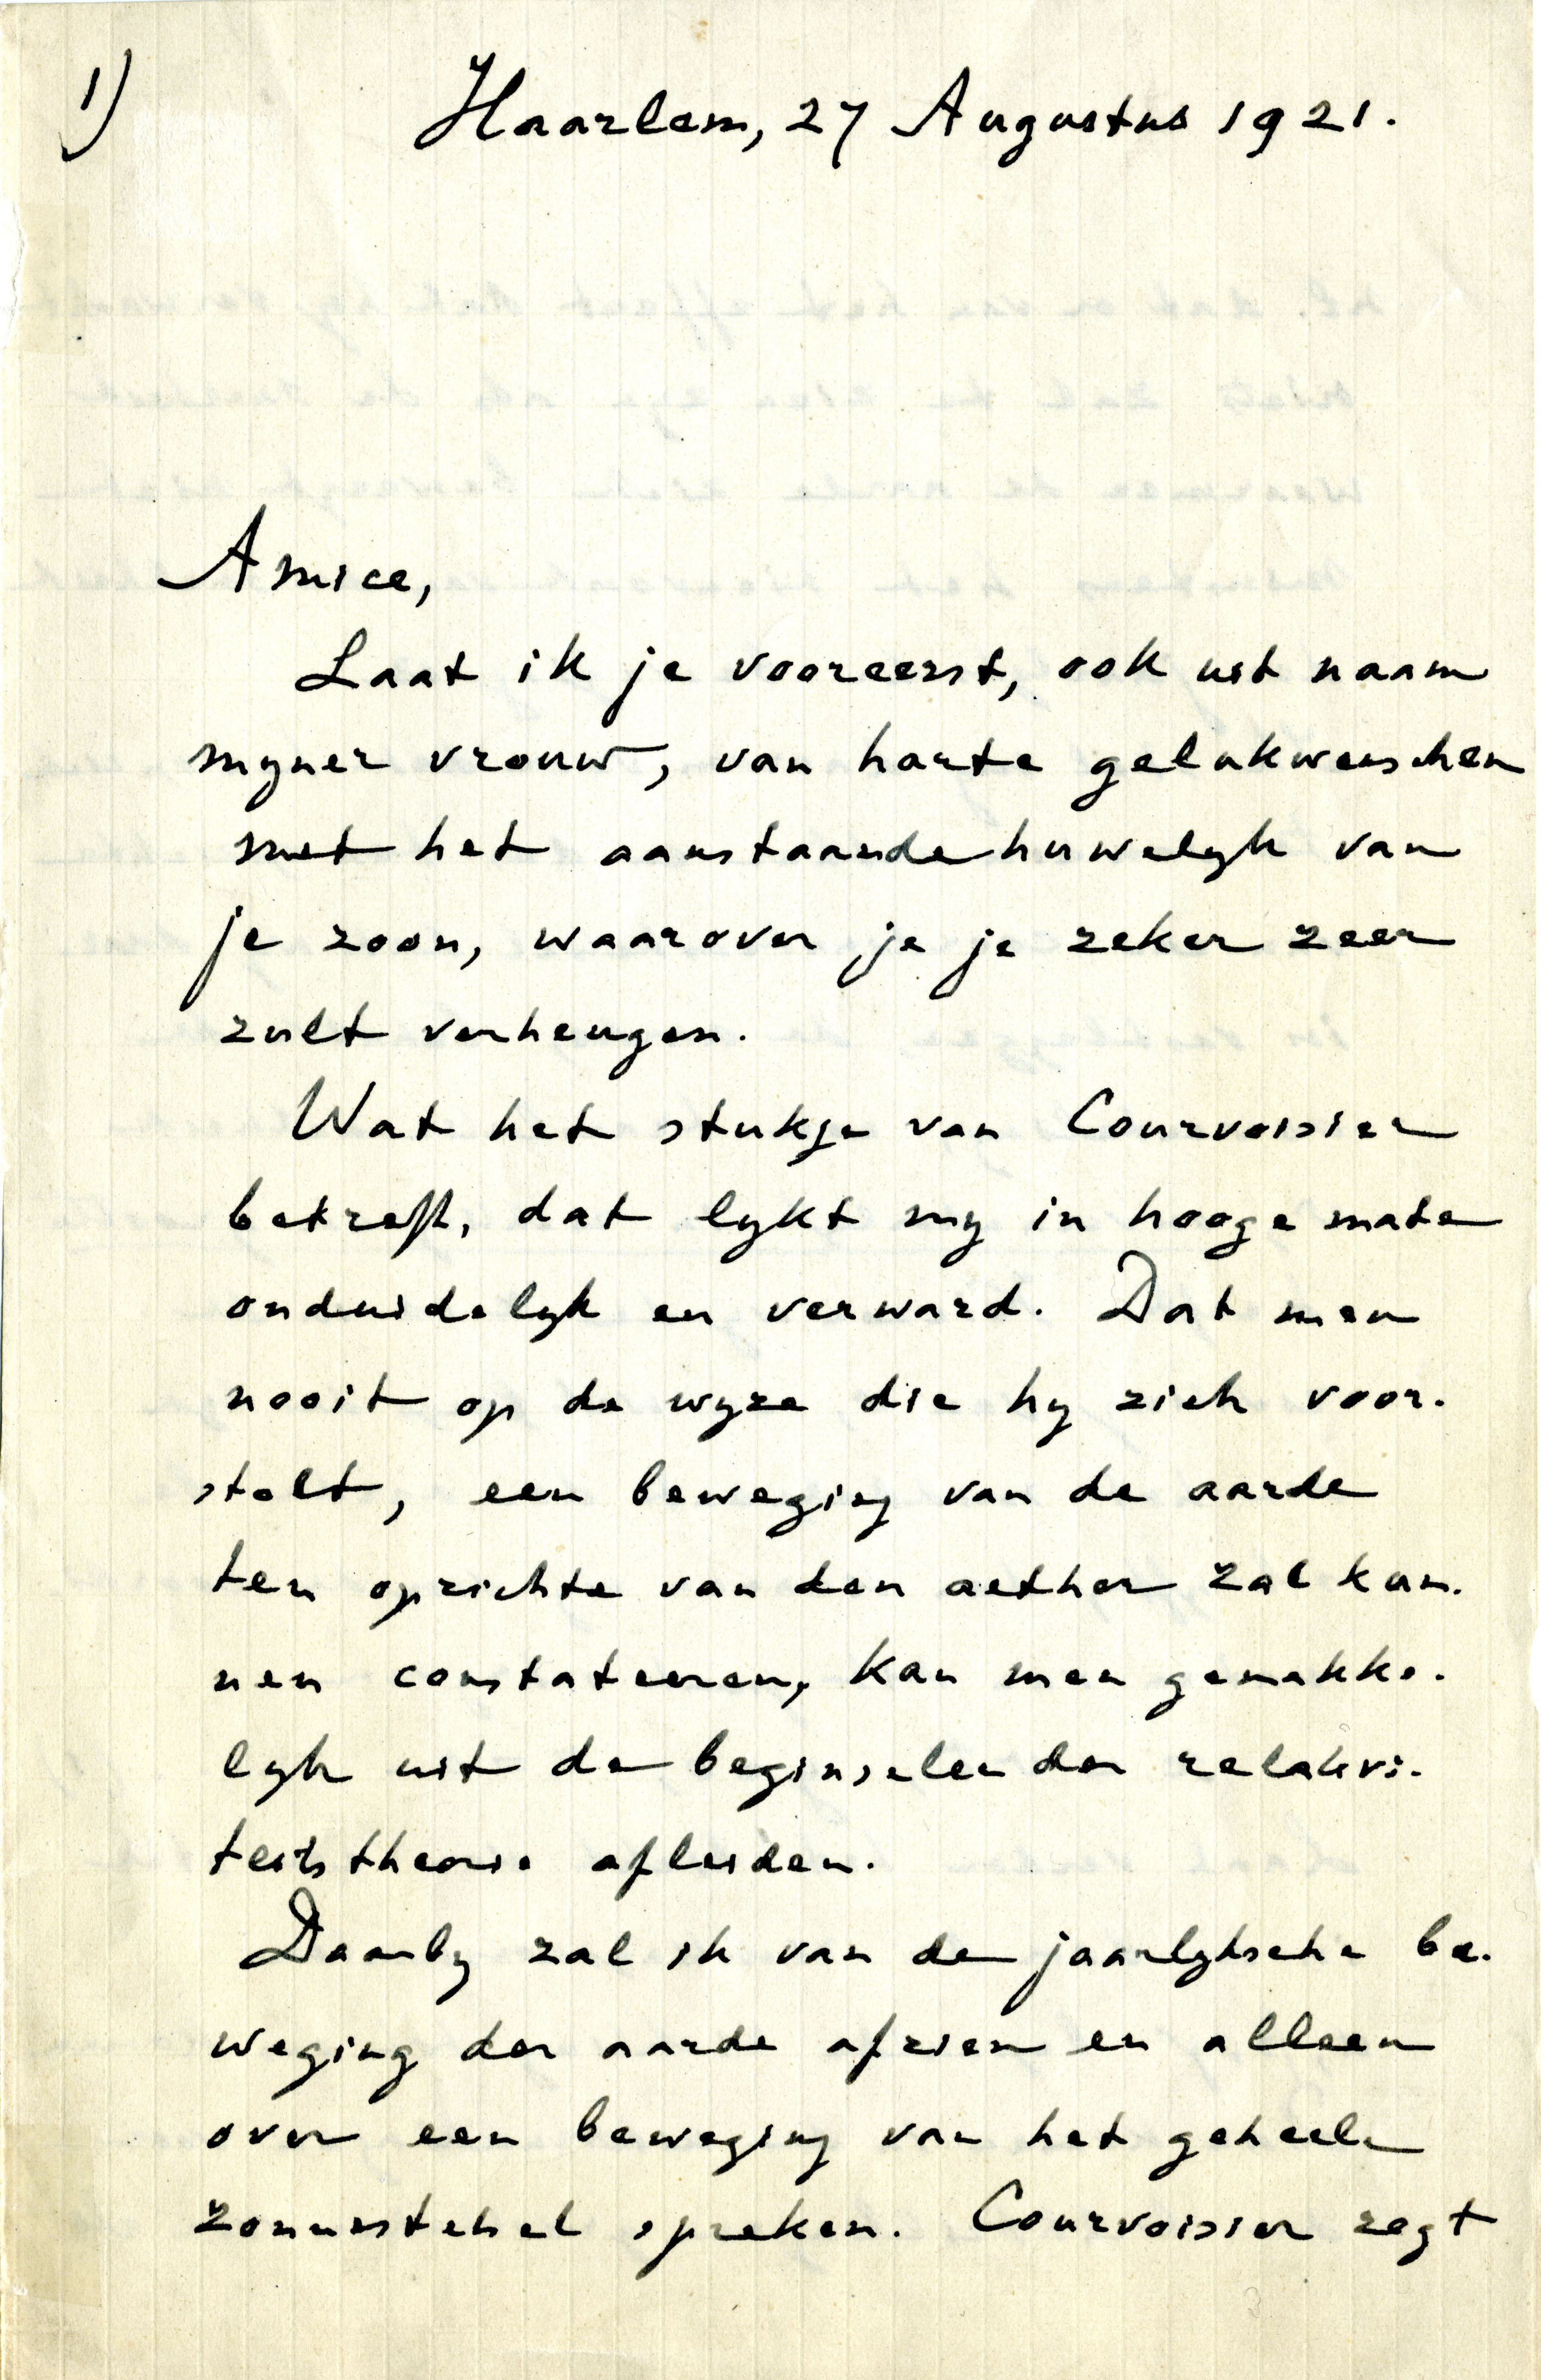 1)
Haarlem, 27 Augustus 1921.
Amice,
Laat ik je vooreerst, ook uit naam
mijner vrouw, van harte gelukwenschen
met het aanstaande huwelijk van
je zoon, waarover je je zeker zeer
zult verheugen.
Wat het stukje van Courvoisier
betreft, dat lijkt mij in hooge mate
onduidelijk en verward. Dat men
nooit op de wijze die hij zich voor-
stelt, een beweging van de aarde
ten opzichte van den aether zal kun-
nen constateeren, kan men gemakke-
lijk uit de beginselen der relativi-
teitstheorie afleiden.
Daarbij zal ik van de jaarlijksche be-
weging der aarde afzien en alleen
over een beweging van het geheele
zonnestelsel spreken. Courvoisier zegt